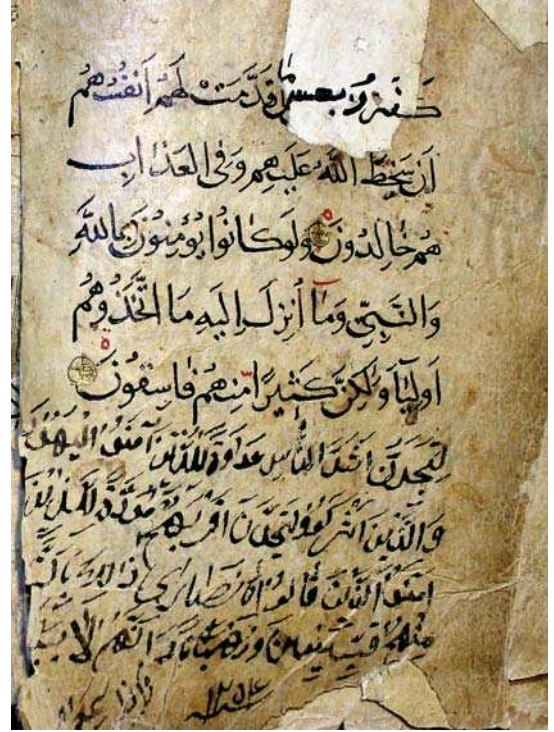 كَفَرُوا لبئس ما قَدَّمَتْ لَهُمْ اَنْفُسُهُمْ
اَنْ سَخِطَ اللَّهُ عَلَيْهِمْ وَفِى الْعَذَابِ
هُمْ خَالِدُونَ وَلَوْ كَانُوا يُؤْمِنُونَ بِاللَّهِ
وَالنَّبِىِّ وَمَآ اُنْزِلَ اِلَيْهِ مَا اتَّخَذُوهُمْ
اَوْلِيَآءَ وَلٰكِنَّ كَثِيرًا مِنْهُمْ فَاسِقُونَ
لتجدن اشد الناس عداوة للذين آمنوا اليهود
والذين اشركوا ولتجدن اقربهم مودة للذين
امنوا الذين قالوا انا نصارى ذلك بان
منهم قسيسين ورهبانا وانهم لا
واذا سمعوا